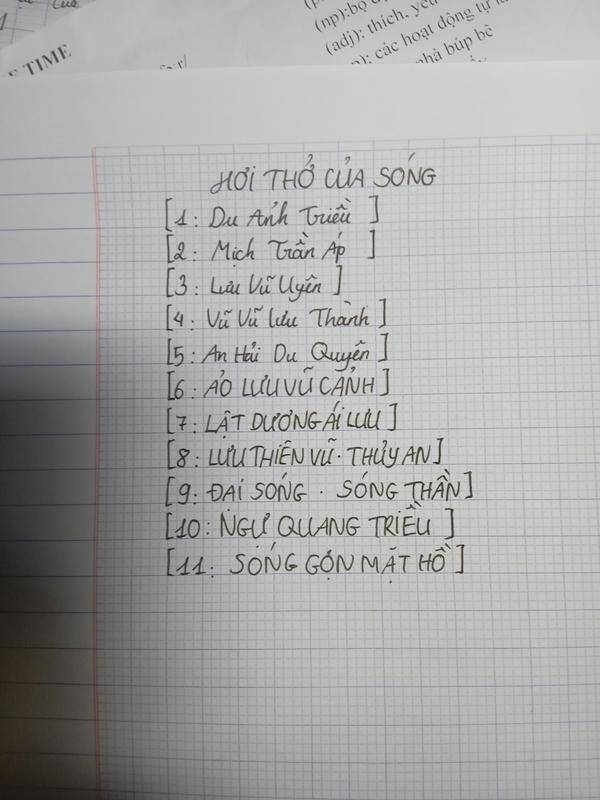 E TIME
(np): bộ
(adj): thích, yêu
các hoạt động tự
nhà búp bê
HƠI THỞ CỦA SÓNG
[1: Du Ảnh Triều ]
[2: Mịch Trần Áp ]
[3: Lưu Vũ Uyên ]
[4: Vũ Vũ Lưu Thành ]
[5: An Hải Du Quyên ]
[6: ẢO LƯU VŨ CẢNH ]
[7: LẬT DƯƠNG ÁI LƯU ]
[8: LƯU THIÊN VŨ · THỦY AN ]
[9: ĐẠI SÓNG · SÓNG THẦN ]
[10: NGỰ QUANG TRIỀU ]
[11: SÓNG GỢN MẶT HỒ ]